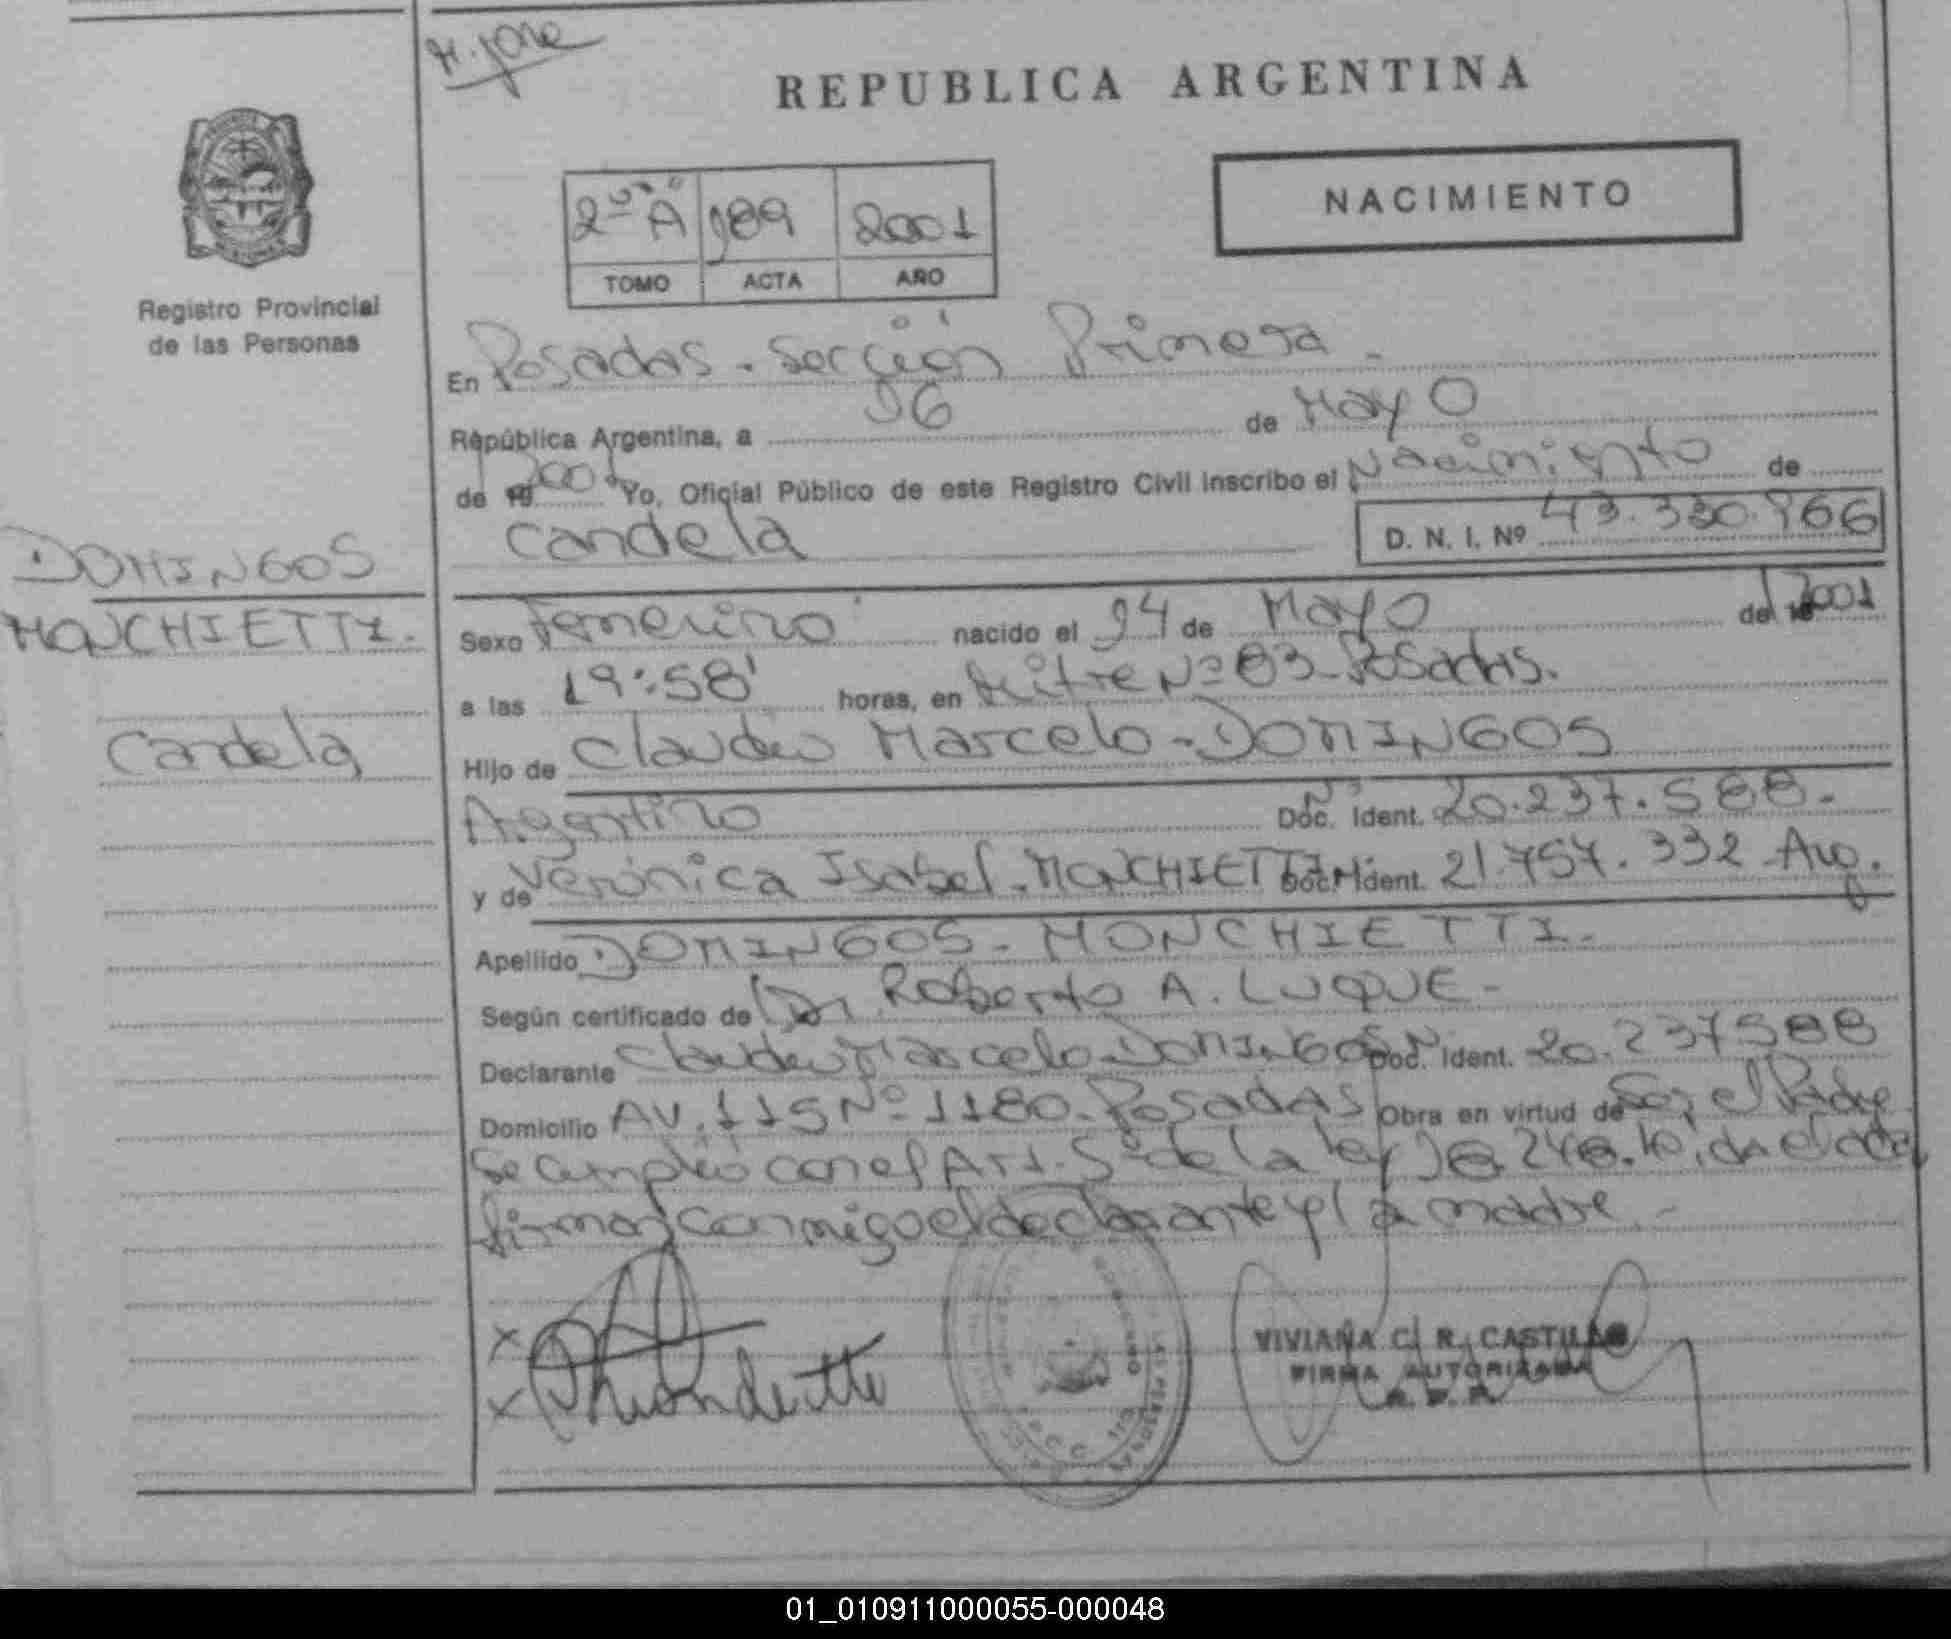 M. José
REPUBLICA ARGENTINA
2do A 189 2001
TOMO ACTA AÑO
NACIMIENTO
Registro Provincial
de las Personas
En Posadas - Sección Primera -
República Argentina, a 16 de Mayo
de 2001 Yo, Oficial Público de este Registro Civil inscribo el Nacimiento de
Candela D. N. I. Nº 43.330.966
DOMINGOS
MONCHIETTI.
Candela
Sexo Femenino nacido el 14 de Mayo del 2001
a las 19:58' horas, en Mitre Nº 83 - Posadas.
Hijo de Claudio Marcelo - DOMINGOS
Argentino Doc. Ident. 20.237.588.-
y de Verónica Isabel - MONCHIETTI Doc. Ident. 21.757.332 - Arg.
Apellido DOMINGOS - MONCHIETTI.
Según certificado de Dr. Roberto A. LUQUE -
Declarante Claudio Marcelo - DOMINGOS Doc. Ident. 20.237588
Domicilio AV. 115 Nº 1180 - Posadas Obra en virtud de Ser el Padre
Se cumplió con el Art. 5º de la ley 18.248. el acta
firman conmigo el declarante y la madre -
VIVIANA C. R. CASTILLO
FIRMA AUTORIZADA
01_010911000055-000048